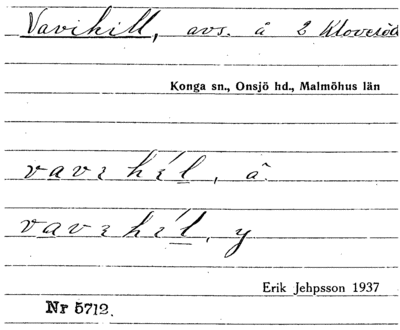 Vavihill, avs. å 2 Kloveröd
Konga sn., Onsjö hd., Malmöhus län
vavɩhíl, å
vavɩhíl, y
Erik Jehpsson 1937
Nr 5712.